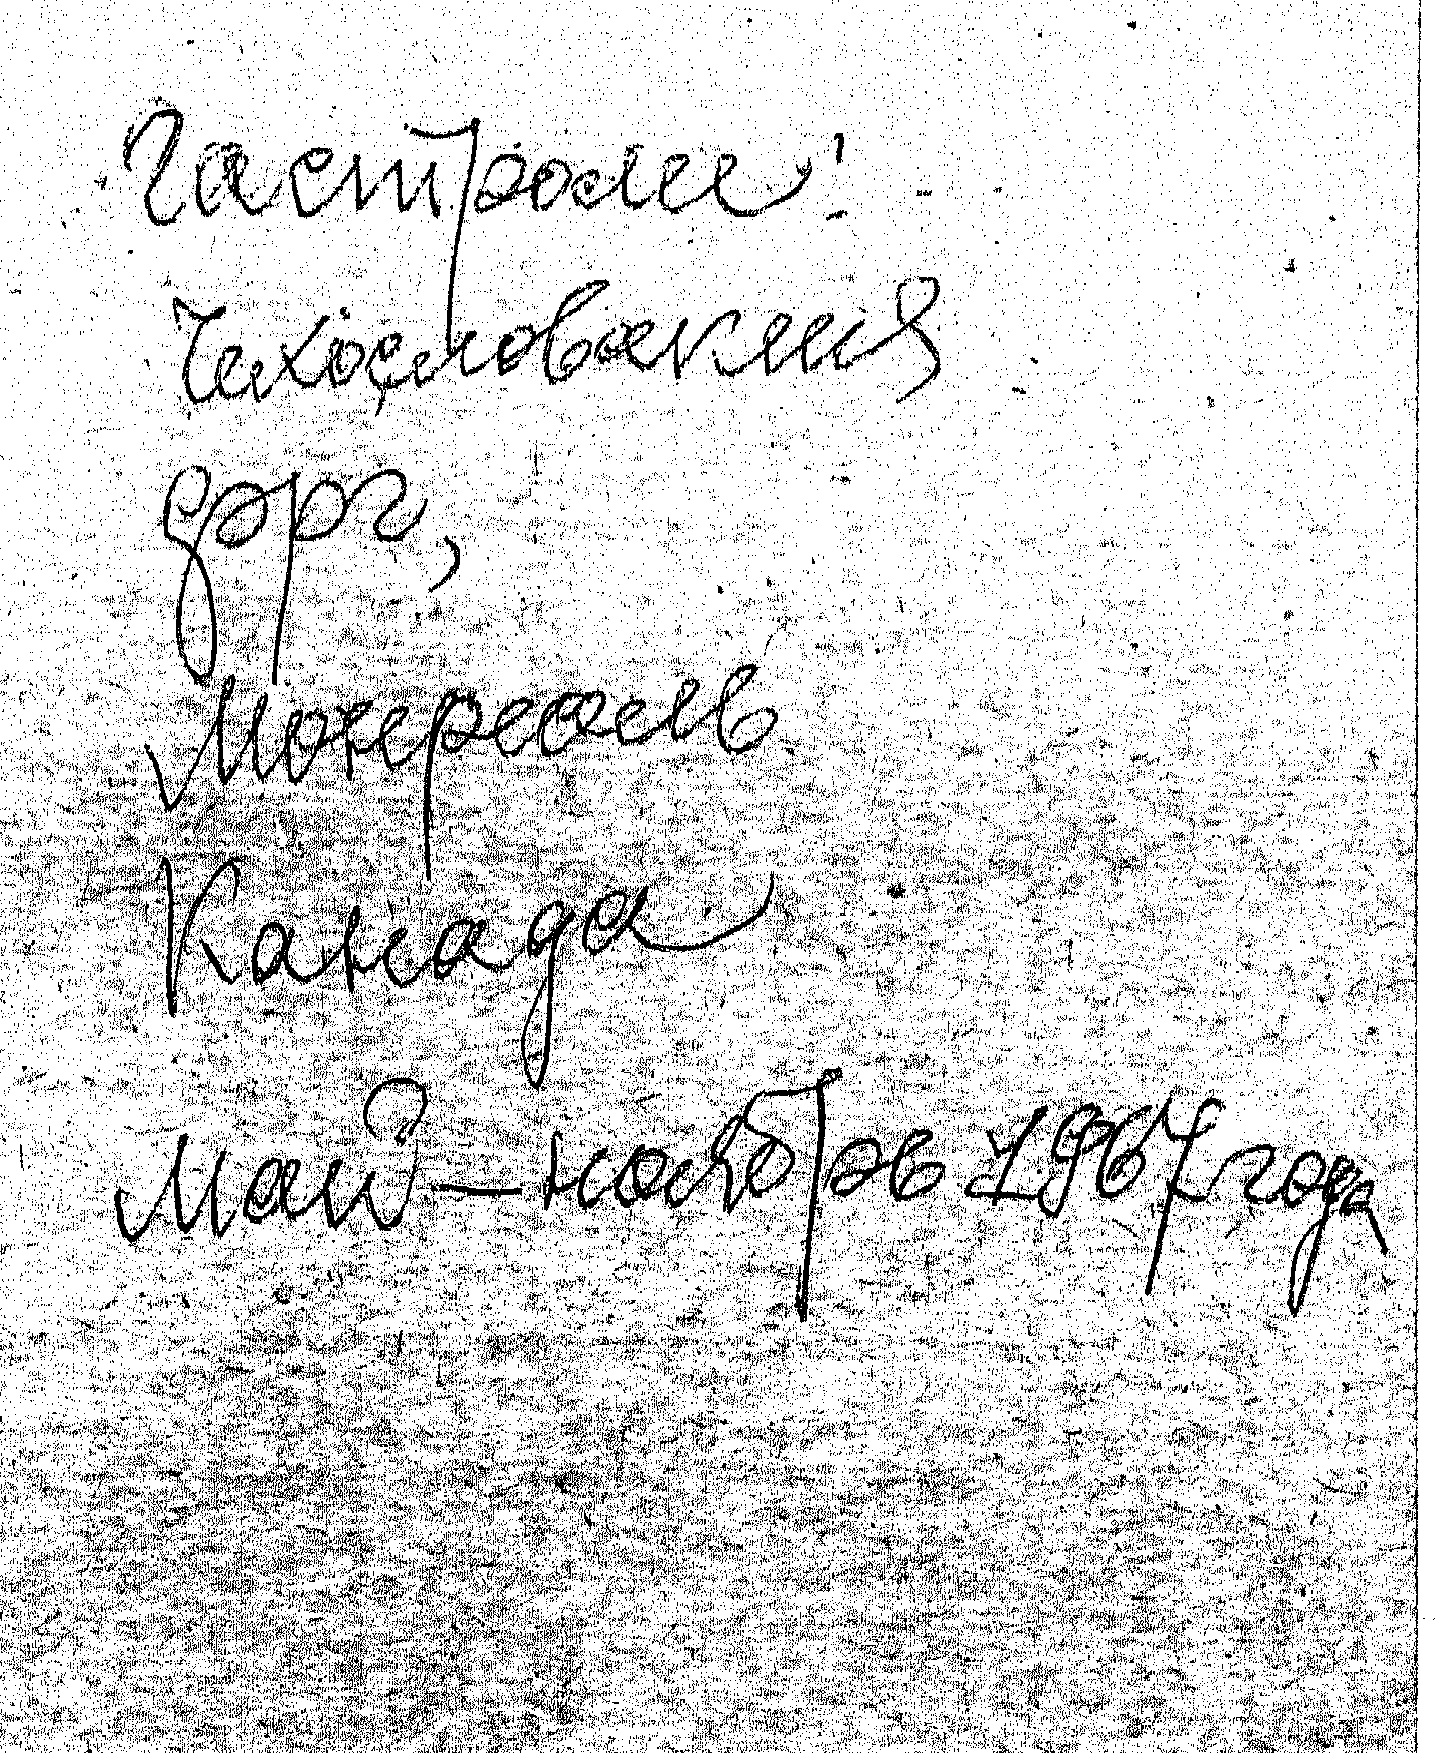 Гастроли:
Чехословакия
ФРГ,
Монреаль
Канада
Май – ноябрь 1967 года